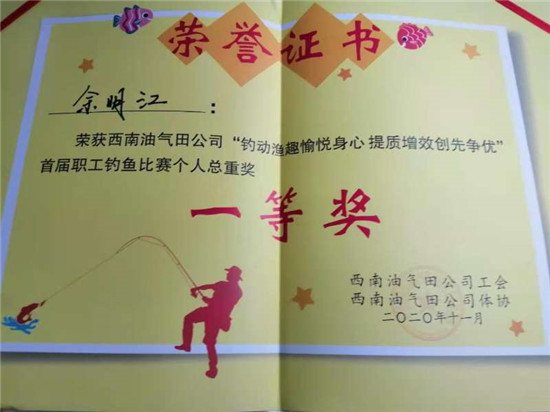 荣誉证书
余明江：
荣获西南油气田公司“钓动渔趣愉悦身心 提质增效创先争优”
首届职工钓鱼比赛个人总重奖
一等奖
西南油气田公司工会
西南油气田公司体协
二〇二〇年十一月